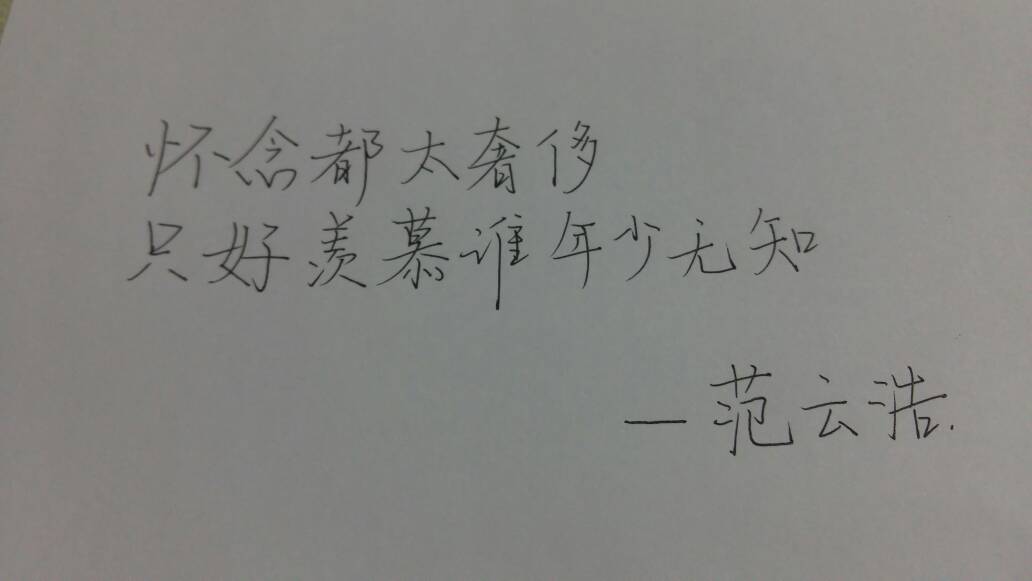 怀念都太奢侈
只好羡慕谁年少无知
—范云浩.